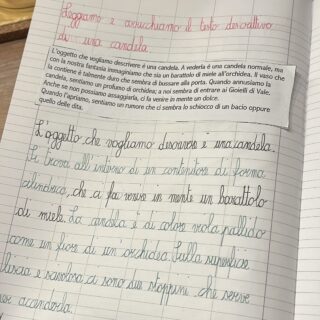 Leggiamo e arricchiamo il testo descrittivo
di una candela
L'oggetto che vogliamo descrivere è una candela. A vederla è una candela normale, ma
con la nostra fantasia immaginiamo che sia un barattolo di miele all'orchidea. Il vaso che
la contiene è talmente duro che sembra di bussare alla porta. Quando annusiamo la
candela, sentiamo un profumo di orchidea; a noi sembra di entrare ai Gioielli di Vale.
Anche se non possiamo assaggiarla, ci fa venire in mente un dolce.
Quando l'apriamo, sentiamo un rumore che ci sembra lo schiocco di un bacio oppure
quello delle dita.
L'oggetto che vogliamo descrivere è una candela.
Si trova all'interno di un contenitore di forma
cilindrica, che ci fa venire in mente un barattolo
di miele. La candela è di colore viola pallido
come un fior di un'orchidea. Sulla superficie
liscia e ci sono due stoppini che serve
per accenderla.